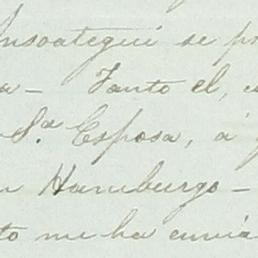 Ansoategui se po
a- Tanto el, e
Sª Esposa, á
n Hamburgo-
to me ha enviá